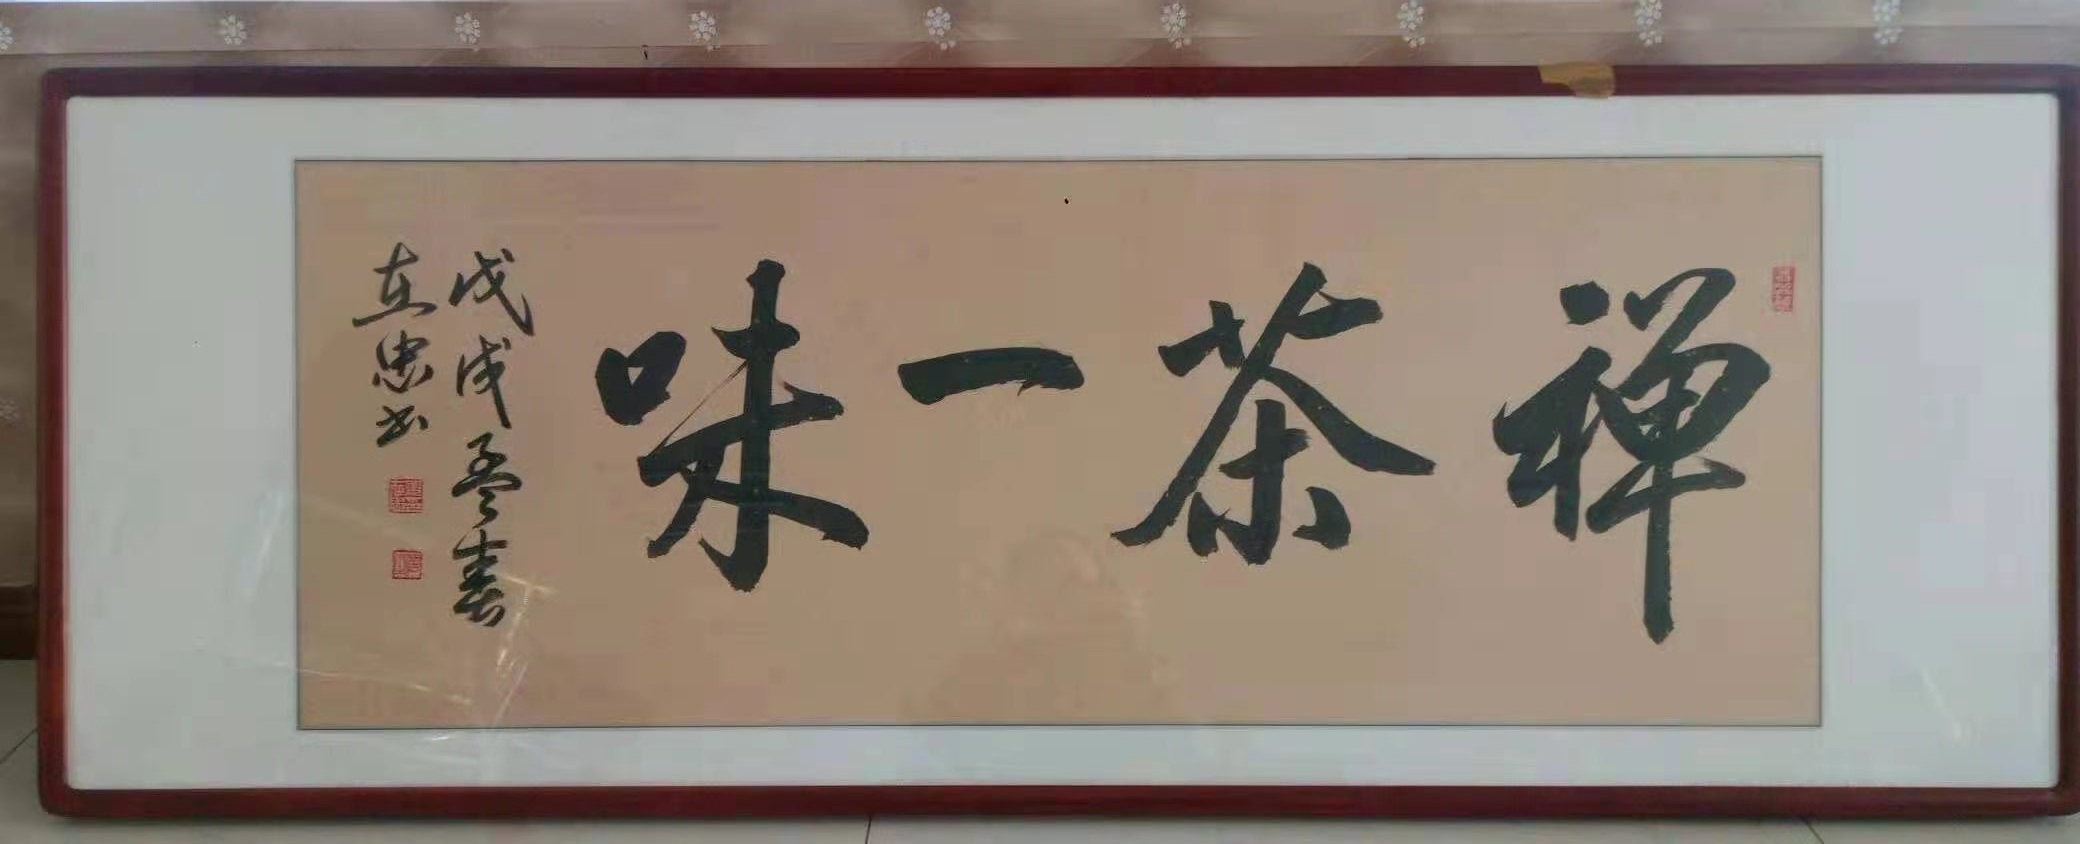 禅茶一味
戊戌孟春
在忠书